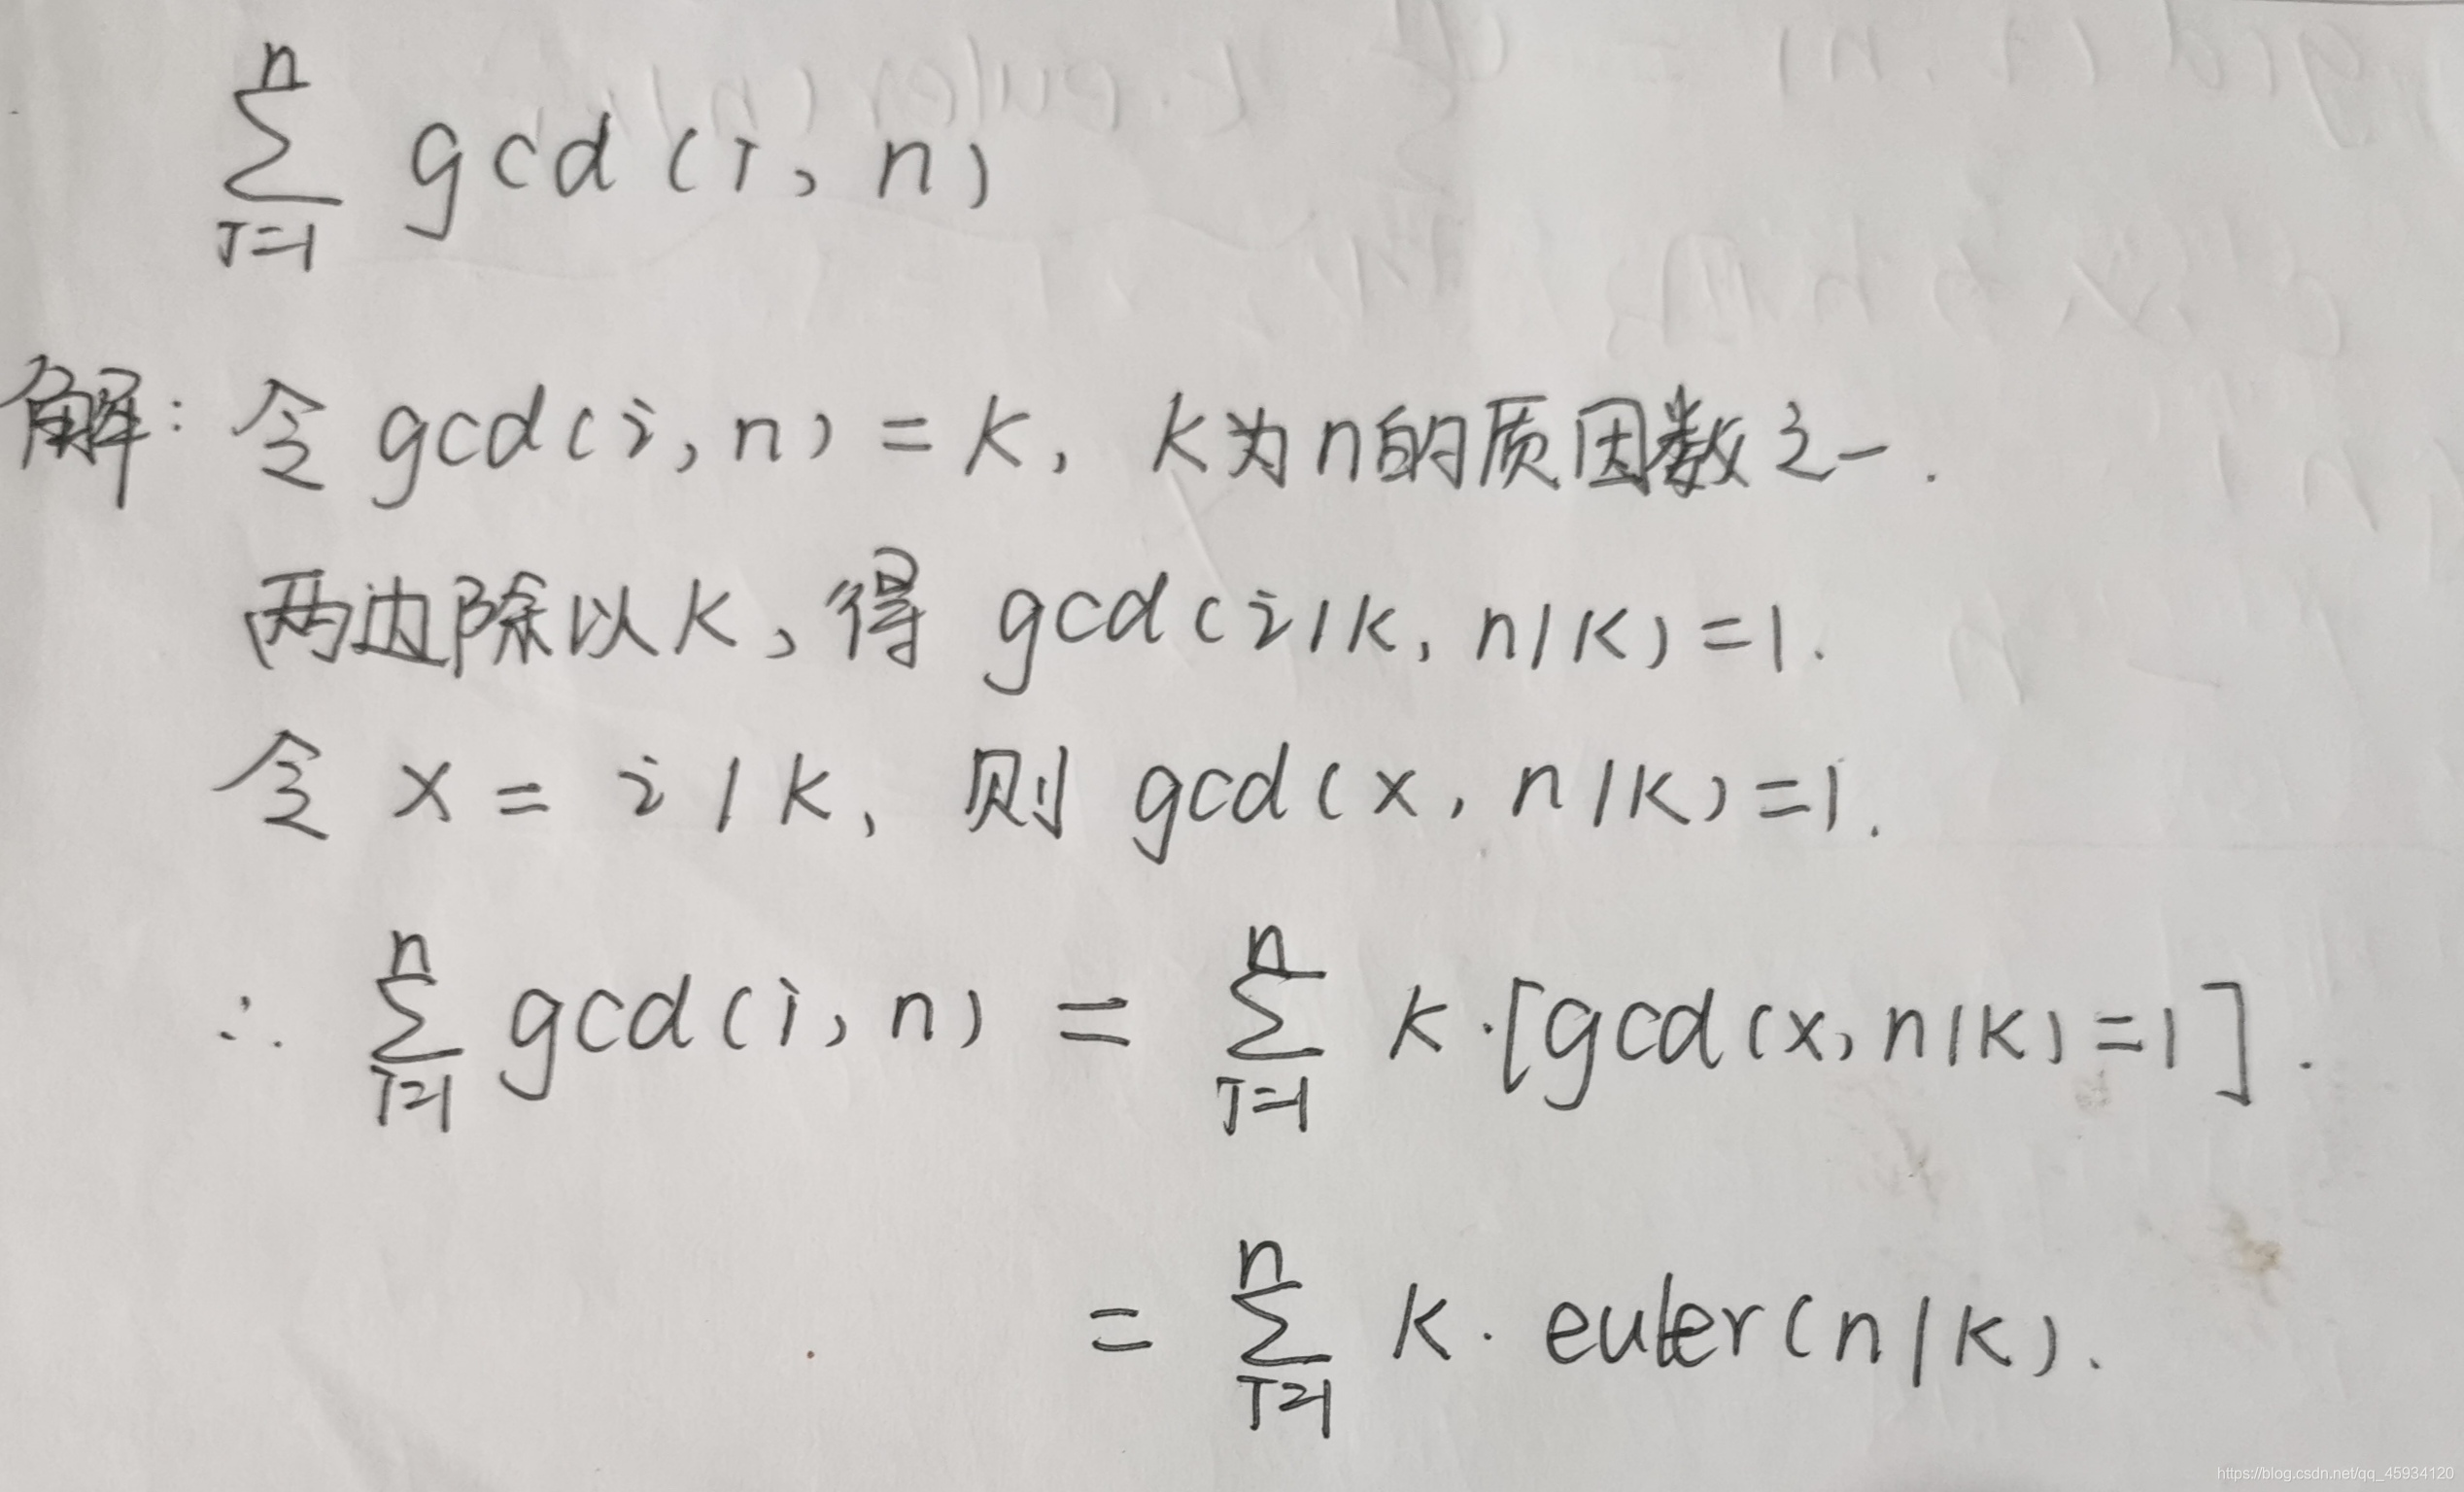 n
∑ gcd(i, n)
i=1
解: 令 gcd(i, n) = k, k为n的质因数之一.
两边除以k, 得 gcd(i/k, n/k)=1.
令 x = i/k, 则 gcd(x, n/k)=1.
n n
∴ ∑ gcd(i, n) = ∑ k·[gcd(x, n/k)=1].
i=1 i=1
n
= ∑ k·euler(n/k).
i=1
https://blog.csdn.net/qq_45934120